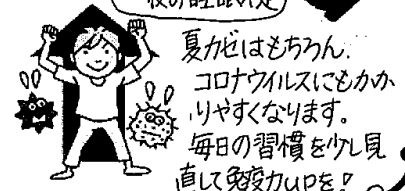 夜の睡眠の足
夏カゼはもちろん、
コロナウイルスにもかか
りやすくなります。
毎日の習慣を少し見
直して免疫力UPを!